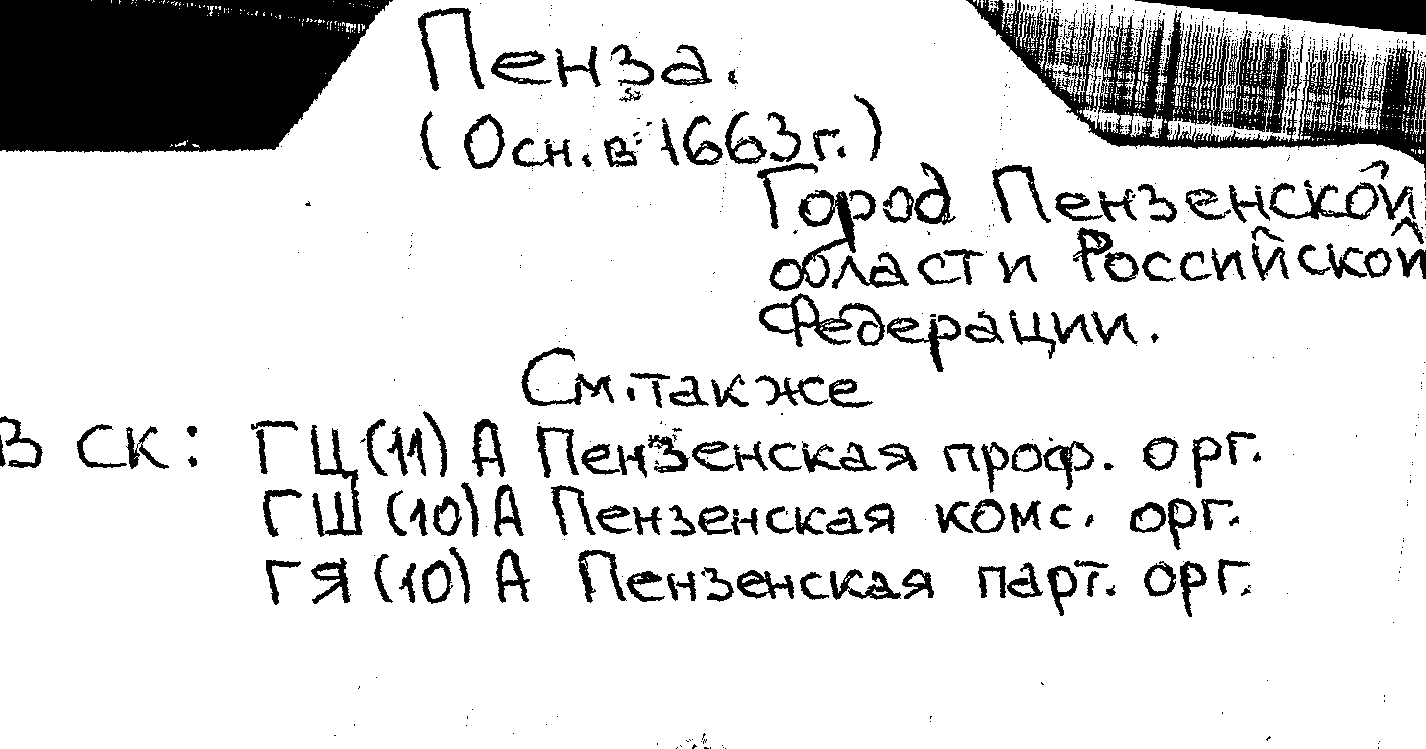 Пенза.
(Осн. в 1663г.)
Город Пензенской
области Российской
Федерации.
См. также
В СК: ГЦ(11)А Пензенская проф. орг.
ГШ (10)А Пензенская комс. орг.
ГЯ (10)А Пензенская парт. орг.